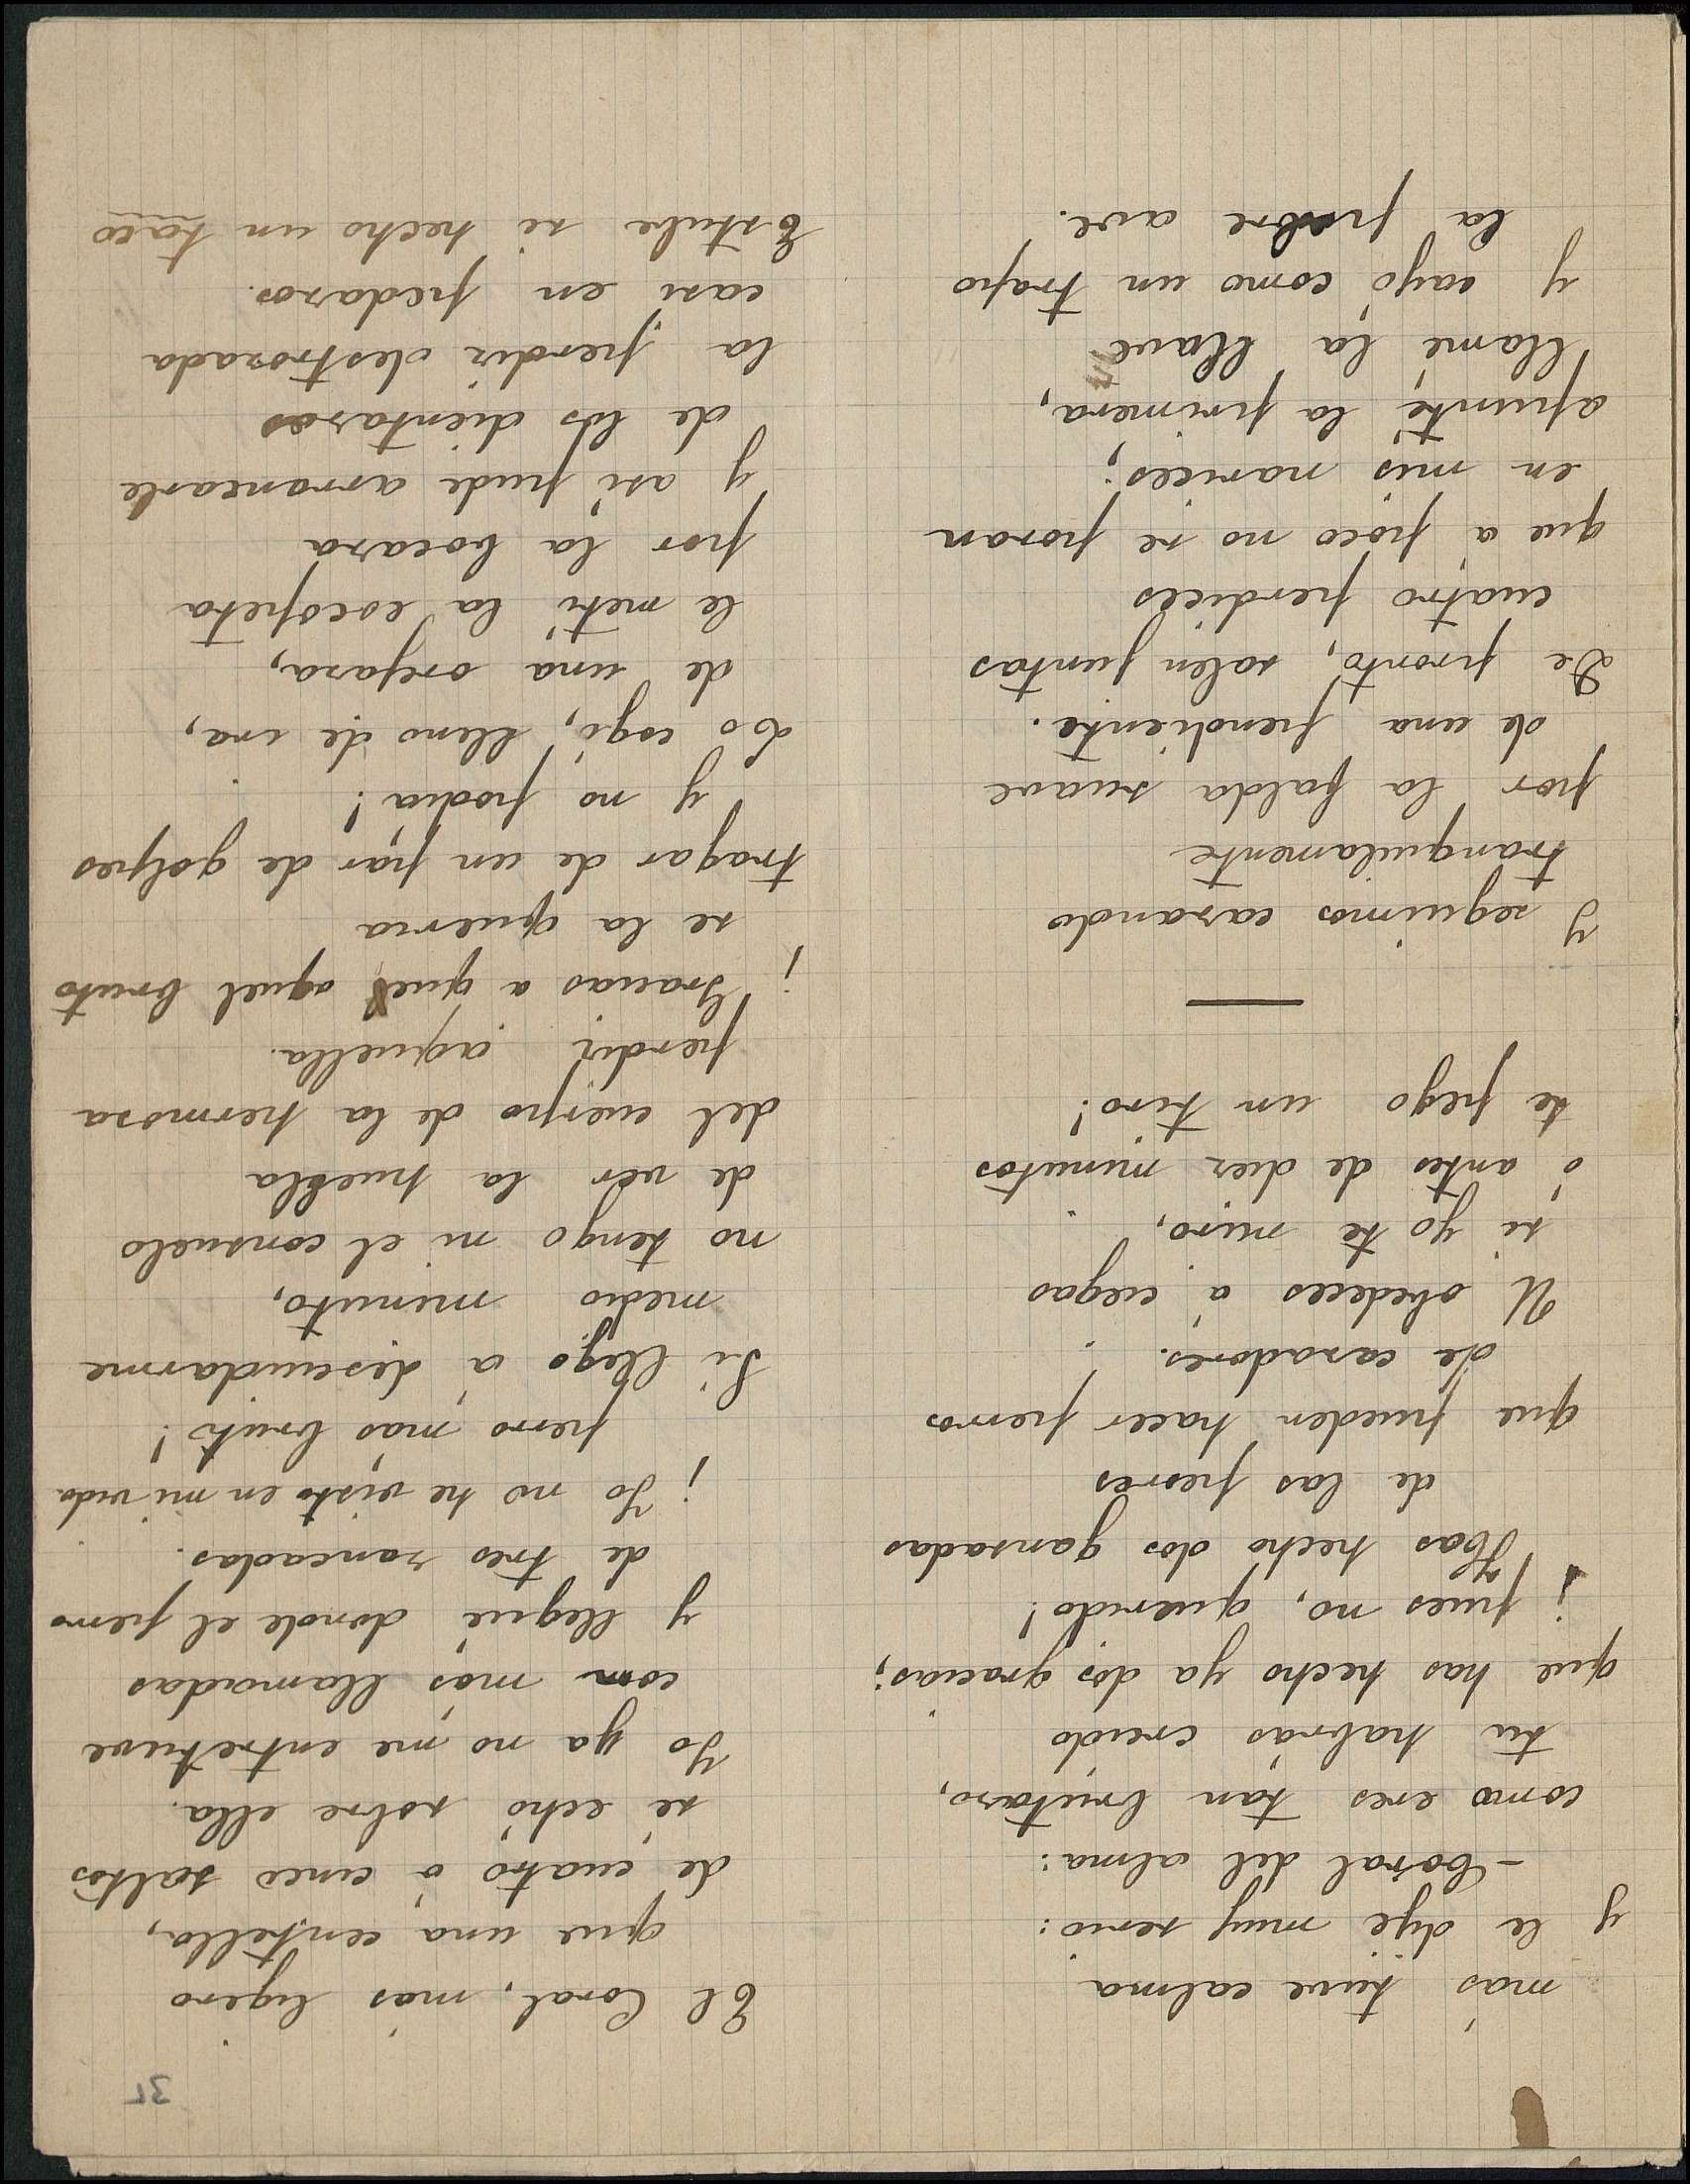 más tuve calma
y le dije muy serio:
—Coral del alma:
como eres tan brutazo,
tu habrás creído
que has hecho ya dos gracias;
¡pues no, querido!
Has hecho dos gansadas
de las peores
que pueden hacer perros
de cazadores.
U obedeces á ciegas
si yo te miro,
ó antes de diez minutos
te pego un tiro!
Y seguimos cazando
tranquilamente
por la falda suave
de una pendiente.
De pronto, salen juntas
cuatro perdices
que á poco no se posan
en mis narices;
apunté la primera,
llamé la llave
y cayó como un trapo
la pobre ave.
32
El Coral, más ligero
que una centella,
de cuatro ó cinco saltos
se echó sobre ella.
Yo ya no me entretuve
com más llamadas
y llegué donde el perro
de tres zancadas.
¡Yo no he visto en mi vida
perro más bruto!
Si llego á descuidarme
medio minuto,
no tengo ni el consuelo
de ver la huella
del cuerpo de la hermosa
perdiz aquella.
¡Gracias a que aquel bruto
se la quería
tragar de un par de golpes
y no podía!
Lo cogí, lleno de ira,
de una orejaza,
le metí la escopeta
por la bocaza
y así pude arrancarle
de los dientazos
la perdiz destrozada
casi en pedazos.
Estube si hecho un taco